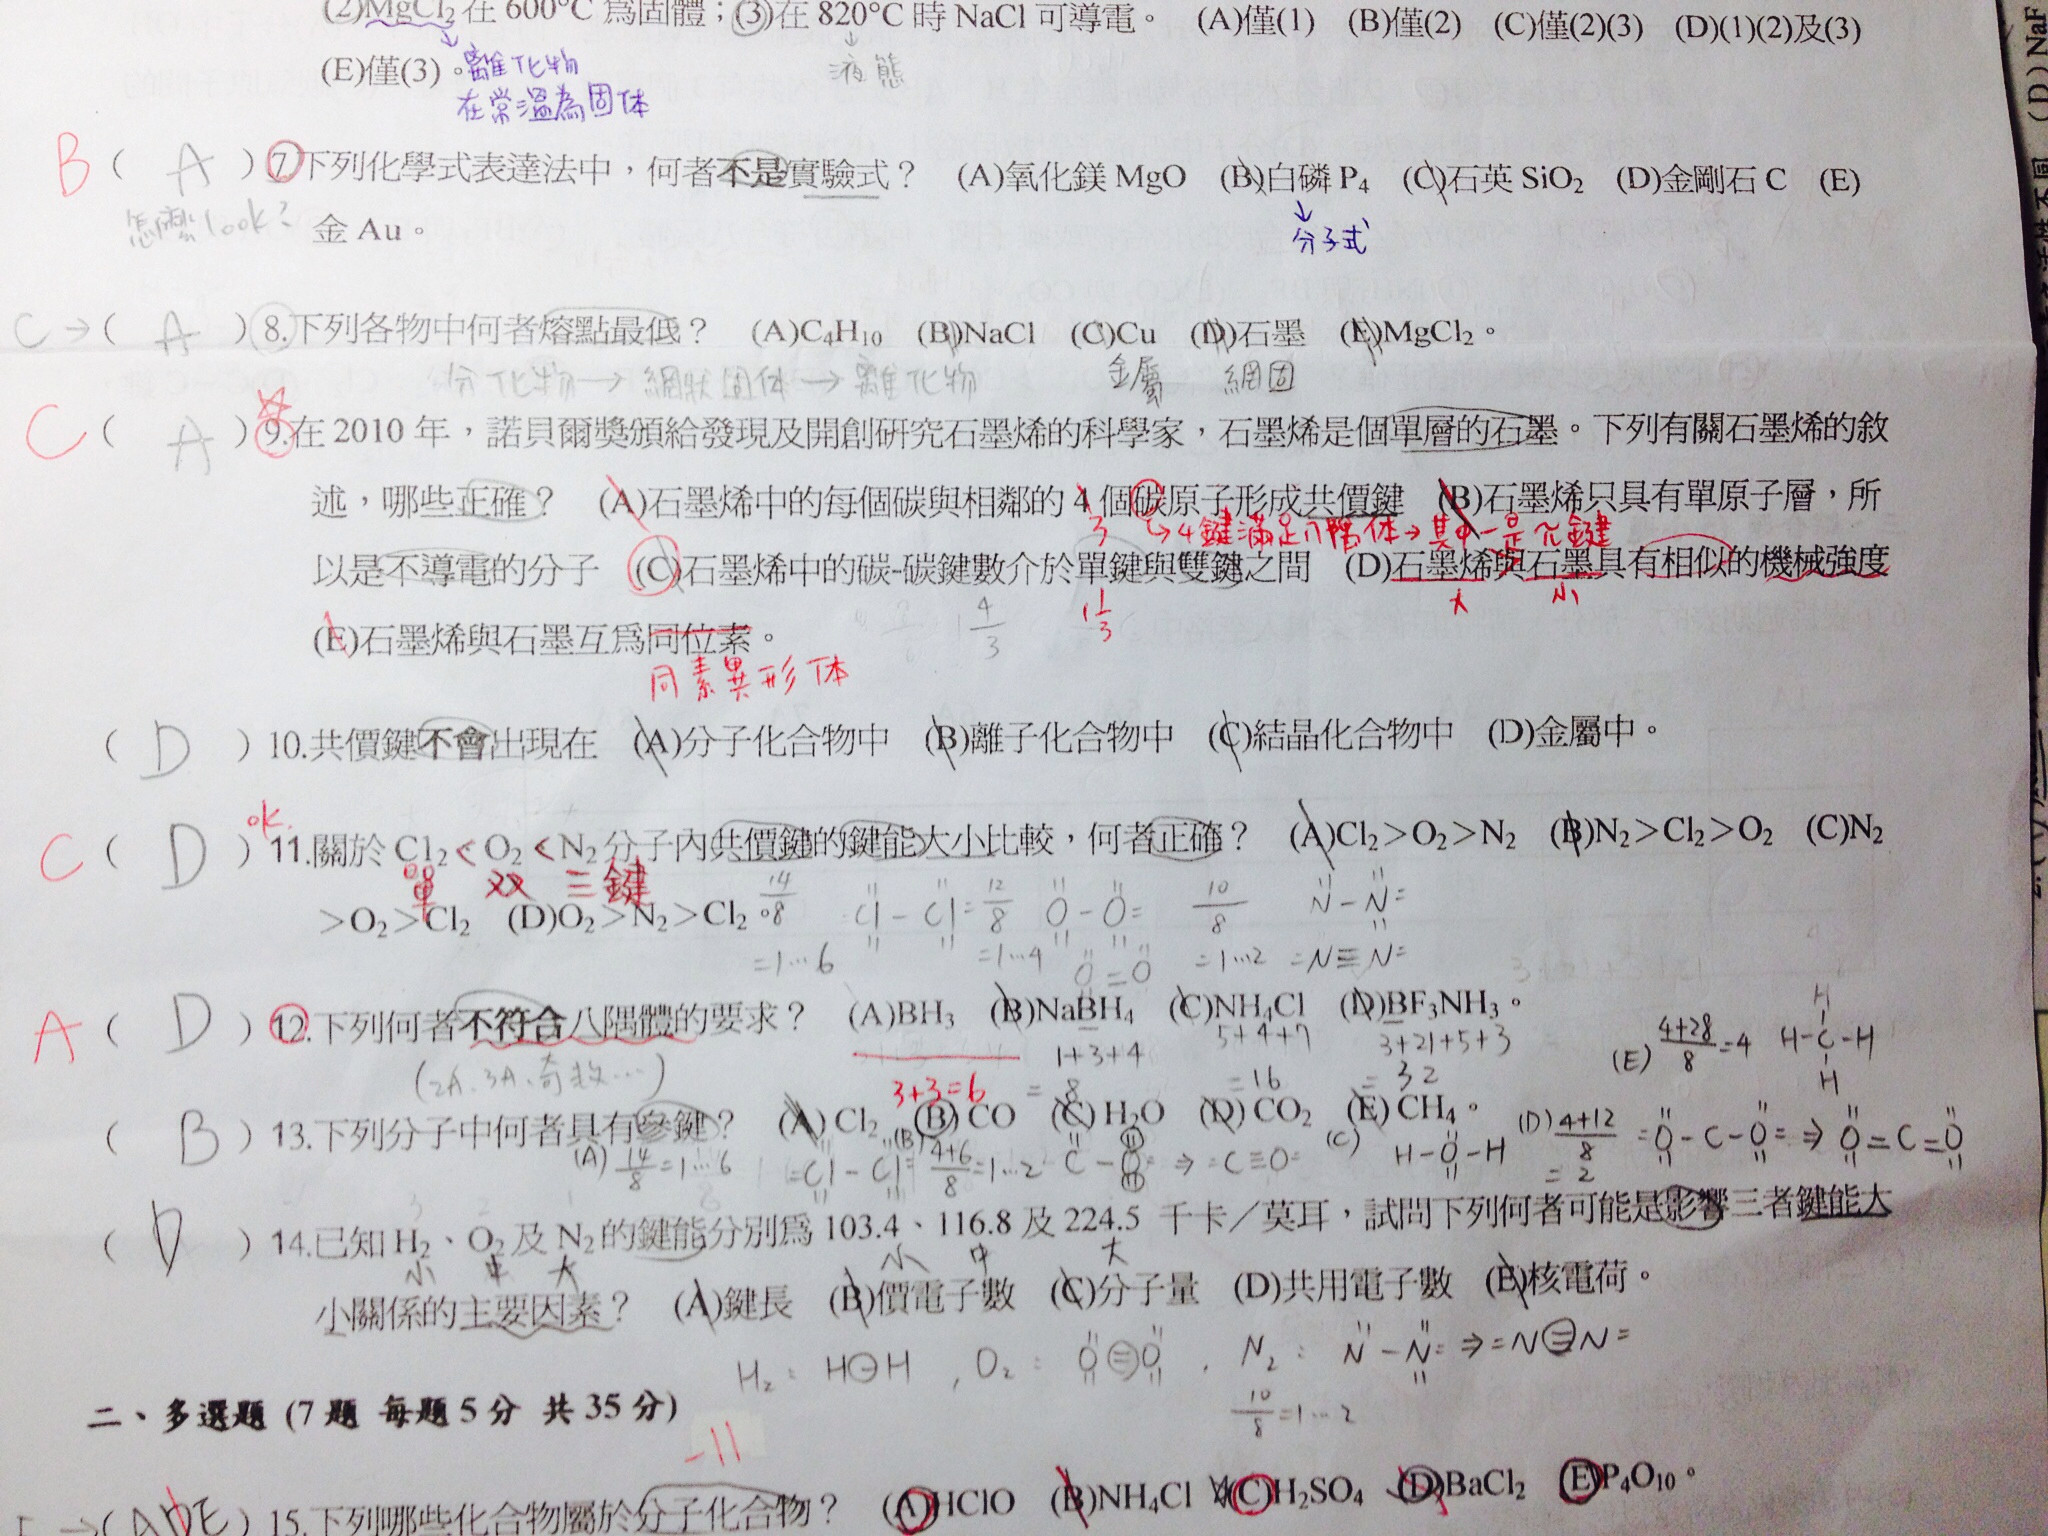 (2)MgCl₂在600°C 為固體；(3)在820°C時NaCl可導電。 (A)僅(1) (B)僅(2) (C)僅(2)(3) (D)(1)(2)及(3)
(E)僅(3)。離化物 液態
在常溫為固体
B ( A ) 7.下列化學式表達法中，何者不是實驗式？ (A)氧化鎂MgO (B)白磷P₄ (C)石英SiO₂ (D)金剛石C (E)
怎麼look? 金Au。 分子式
C→( A ) 8.下列各物中何者熔點最低？ (A)C₄H₁₀ (B)NaCl (C)Cu (D)石墨 (E)MgCl₂。
分化物→網狀固体→離化物 金屬 網固
C ( A ) 9.在2010年，諾貝爾獎頒給發現及開創研究石墨烯的科學家，石墨烯是個單層的石墨。下列有關石墨烯的敘
述，哪些正確？ (A)石墨烯中的每個碳與相鄰的4個碳原子形成共價鍵 (B)石墨烯只具有單原子層，所
3 4鍵滿足八隅体→其中一是π鍵
以是不導電的分子 (C)石墨烯中的碳-碳鍵數介於單鍵與雙鍵之間 (D)石墨烯與石墨具有相似的機械強度
4/3 1 1/3 大 小
(E)石墨烯與石墨互為同位素。
同素異形体
( D ) 10.共價鍵不會出現在 (A)分子化合物中 (B)離子化合物中 (C)結晶化合物中 (D)金屬中。
C ( D ) ok. 11.關於Cl₂<O₂<N₂分子內共價鍵的鍵能大小比較，何者正確？ (A)Cl₂＞O₂＞N₂ (B)N₂＞Cl₂＞O₂ (C)N₂
單 双 三鍵
＞O₂＞Cl₂ (D)O₂＞N₂＞Cl₂。 14/8 Cl-Cl 12/8 O-O 10/8 N-N
=1…6 =1…4 O=O =1…2 N≡N
A ( D ) 12.下列何者不符合八隅體的要求？ (A)BH₃ (B)NaBH₄ (C)NH₄Cl (D)BF₃NH₃。
(2A、3A、奇数…) 3+3=6 1+3+4=8 5+4+7=16 3+21+5+3=32
(E) 4+28/8=4 H-C-H
H
H
( B ) 13.下列分子中何者具有參鍵？ (A) Cl₂ (B) CO (C) H₂O (D) CO₂ (E) CH₄。
(A) 14/8=1…6 Cl-Cl (B) 4+6/8=1…2 C-O ⇒ C≡O (C) H-O-H (D) 4+12/8=2 O-C-O ⇒ O=C=O
( D ) 14.已知H₂、O₂及N₂的鍵能分別為103.4、116.8及224.5 千卡／莫耳，試問下列何者可能是影響三者鍵能大
小 中 大 小 中 大
小關係的主要因素？ (A)鍵長 (B)價電子數 (C)分子量 (D)共用電子數 (E)核電荷。
H₂: H-H , O₂: O=O , N₂: N-N ⇒ N≡N
10/8=1…2
二、多選題 (7題 每題5分 共35分)
-11
(ADE) 15.下列哪些化合物屬於分子化合物？ (A)HClO (B)NH₄Cl (C)H₂SO₄ (D)BaCl₂ (E)P₄O₁₀。
(D) NaF